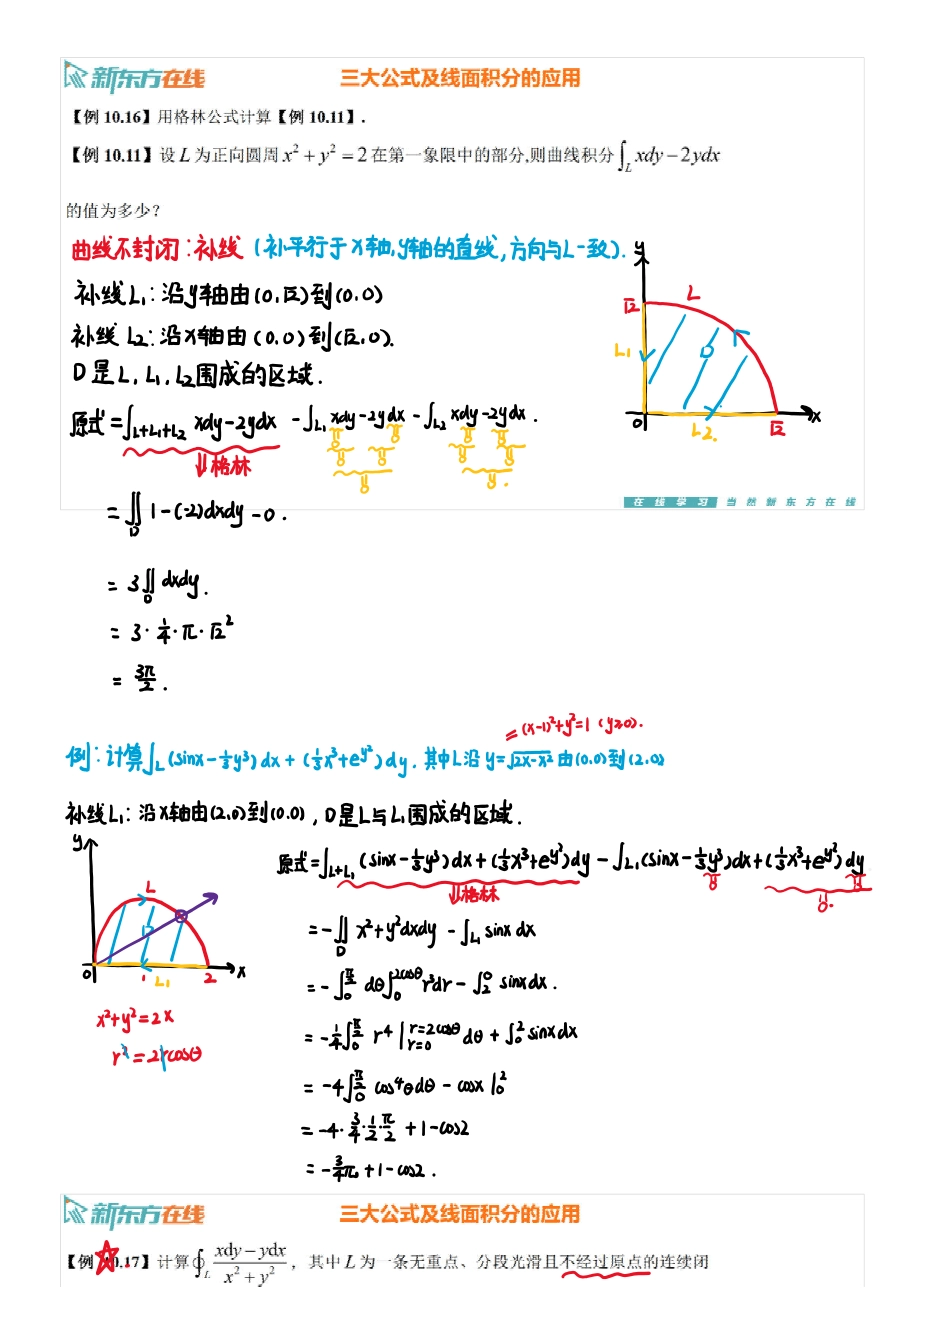 新东方在线 三大公式及线面积分的应用
【例 10.16】用格林公式计算【例 10.11】.
【例 10.11】设 L 为正向圆周 x² + y² = 2 在第一象限中的部分,则曲线积分 ∫_L xdy − 2ydx
的值为多少?
曲线不封闭:补线 (补平行于X轴,y轴的直线,方向与L一致).
补线L₁:沿y轴由(0,√2)到(0,0)
补线L₂:沿x轴由(0,0)到(√2,0).
D是L,L₁,L₂围成的区域.
y
√2 L
L₁ D
0 L₂. √2 x
原式=∫_{L+L₁+L₂} xdy-2ydx -∫_{L₁} xdy-2ydx -∫_{L₂} xdy-2ydx.
0 0 0 0
⇓格林 0 0 0 0
0 0.
在线学习 当然新东方在线
=∬_D 1-(-2)dxdy -0.
= 3∬_D dxdy.
= 3·¼·π·√2²
= 3π/2.
= (x-1)²+y²=1 (y≥0).
例:计算∫_L (sinx-⅓y³)dx+(⅓x³+e^{y²})dy. 其中L沿 y=√(2x-x²) 由(0,0)到(2,0)
补线L₁:沿X轴由(2,0)到(0,0),D是L与L₁围成的区域.
y
L
D
0 1 L₁ 2 x
x²+y²=2x
r²=2rcosθ
原式=∫_{L+L₁} (sinx-⅓y³)dx+(⅓x³+e^{y²})dy -∫_{L₁}(sinx-⅓y³)dx+(⅓x³+e^{y²})dy
⇓格林 0 0
0.
=-∬_D x²+y²dxdy -∫_{L₁} sinx dx
=-∫_0^{π/2} dθ∫_0^{2cosθ} r³dr -∫_2^0 sinxdx.
=-¼∫_0^{π/2} r⁴|_{r=0}^{r=2cosθ} dθ +∫_0^2 sinxdx
= -4∫_0^{π/2} cos⁴θdθ - cosx|_0^2
= -4·¾·½·π/2 +1-cos2
= -¾π+1-cos2.
新东方在线 三大公式及线面积分的应用
【例 10.17】计算 ∮_L (xdy − ydx)/(x² + y²), 其中 L 为一条无重点、分段光滑且不经过原点的连续闭